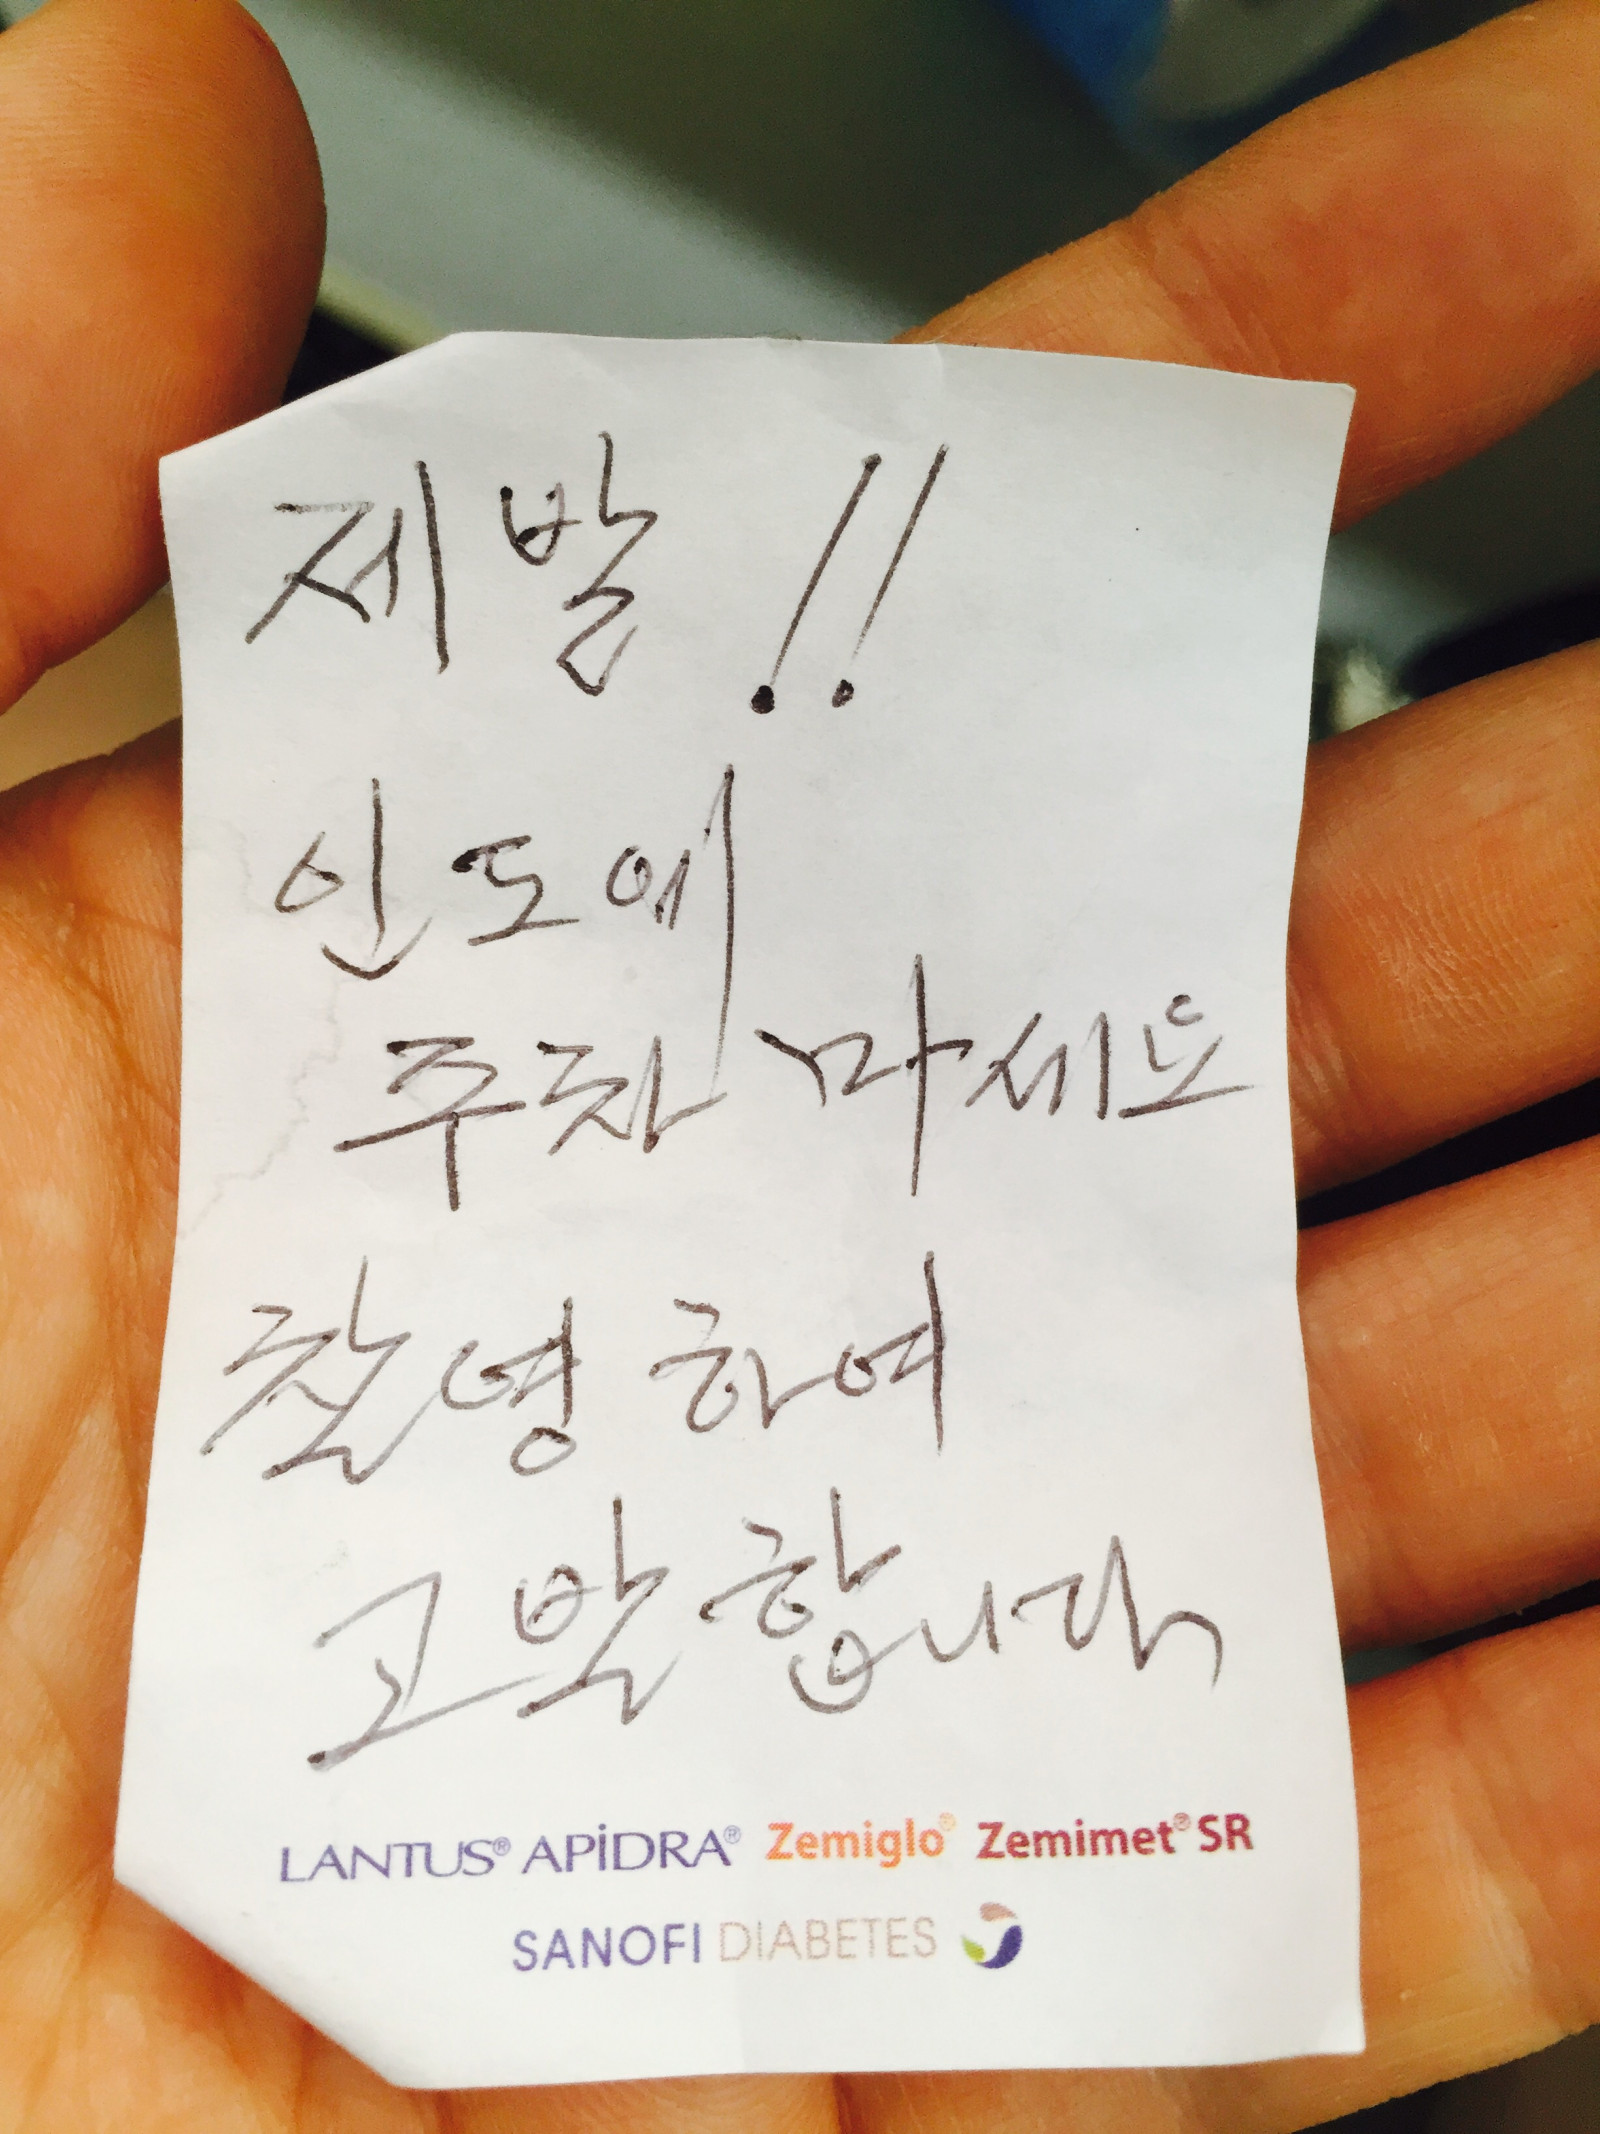 제발!!
인도에
주차 마세요
촬영하여
고발합니다
LANTUS® APiDRA® Zemiglo® Zemimet® SR
SANOFI DIABETES